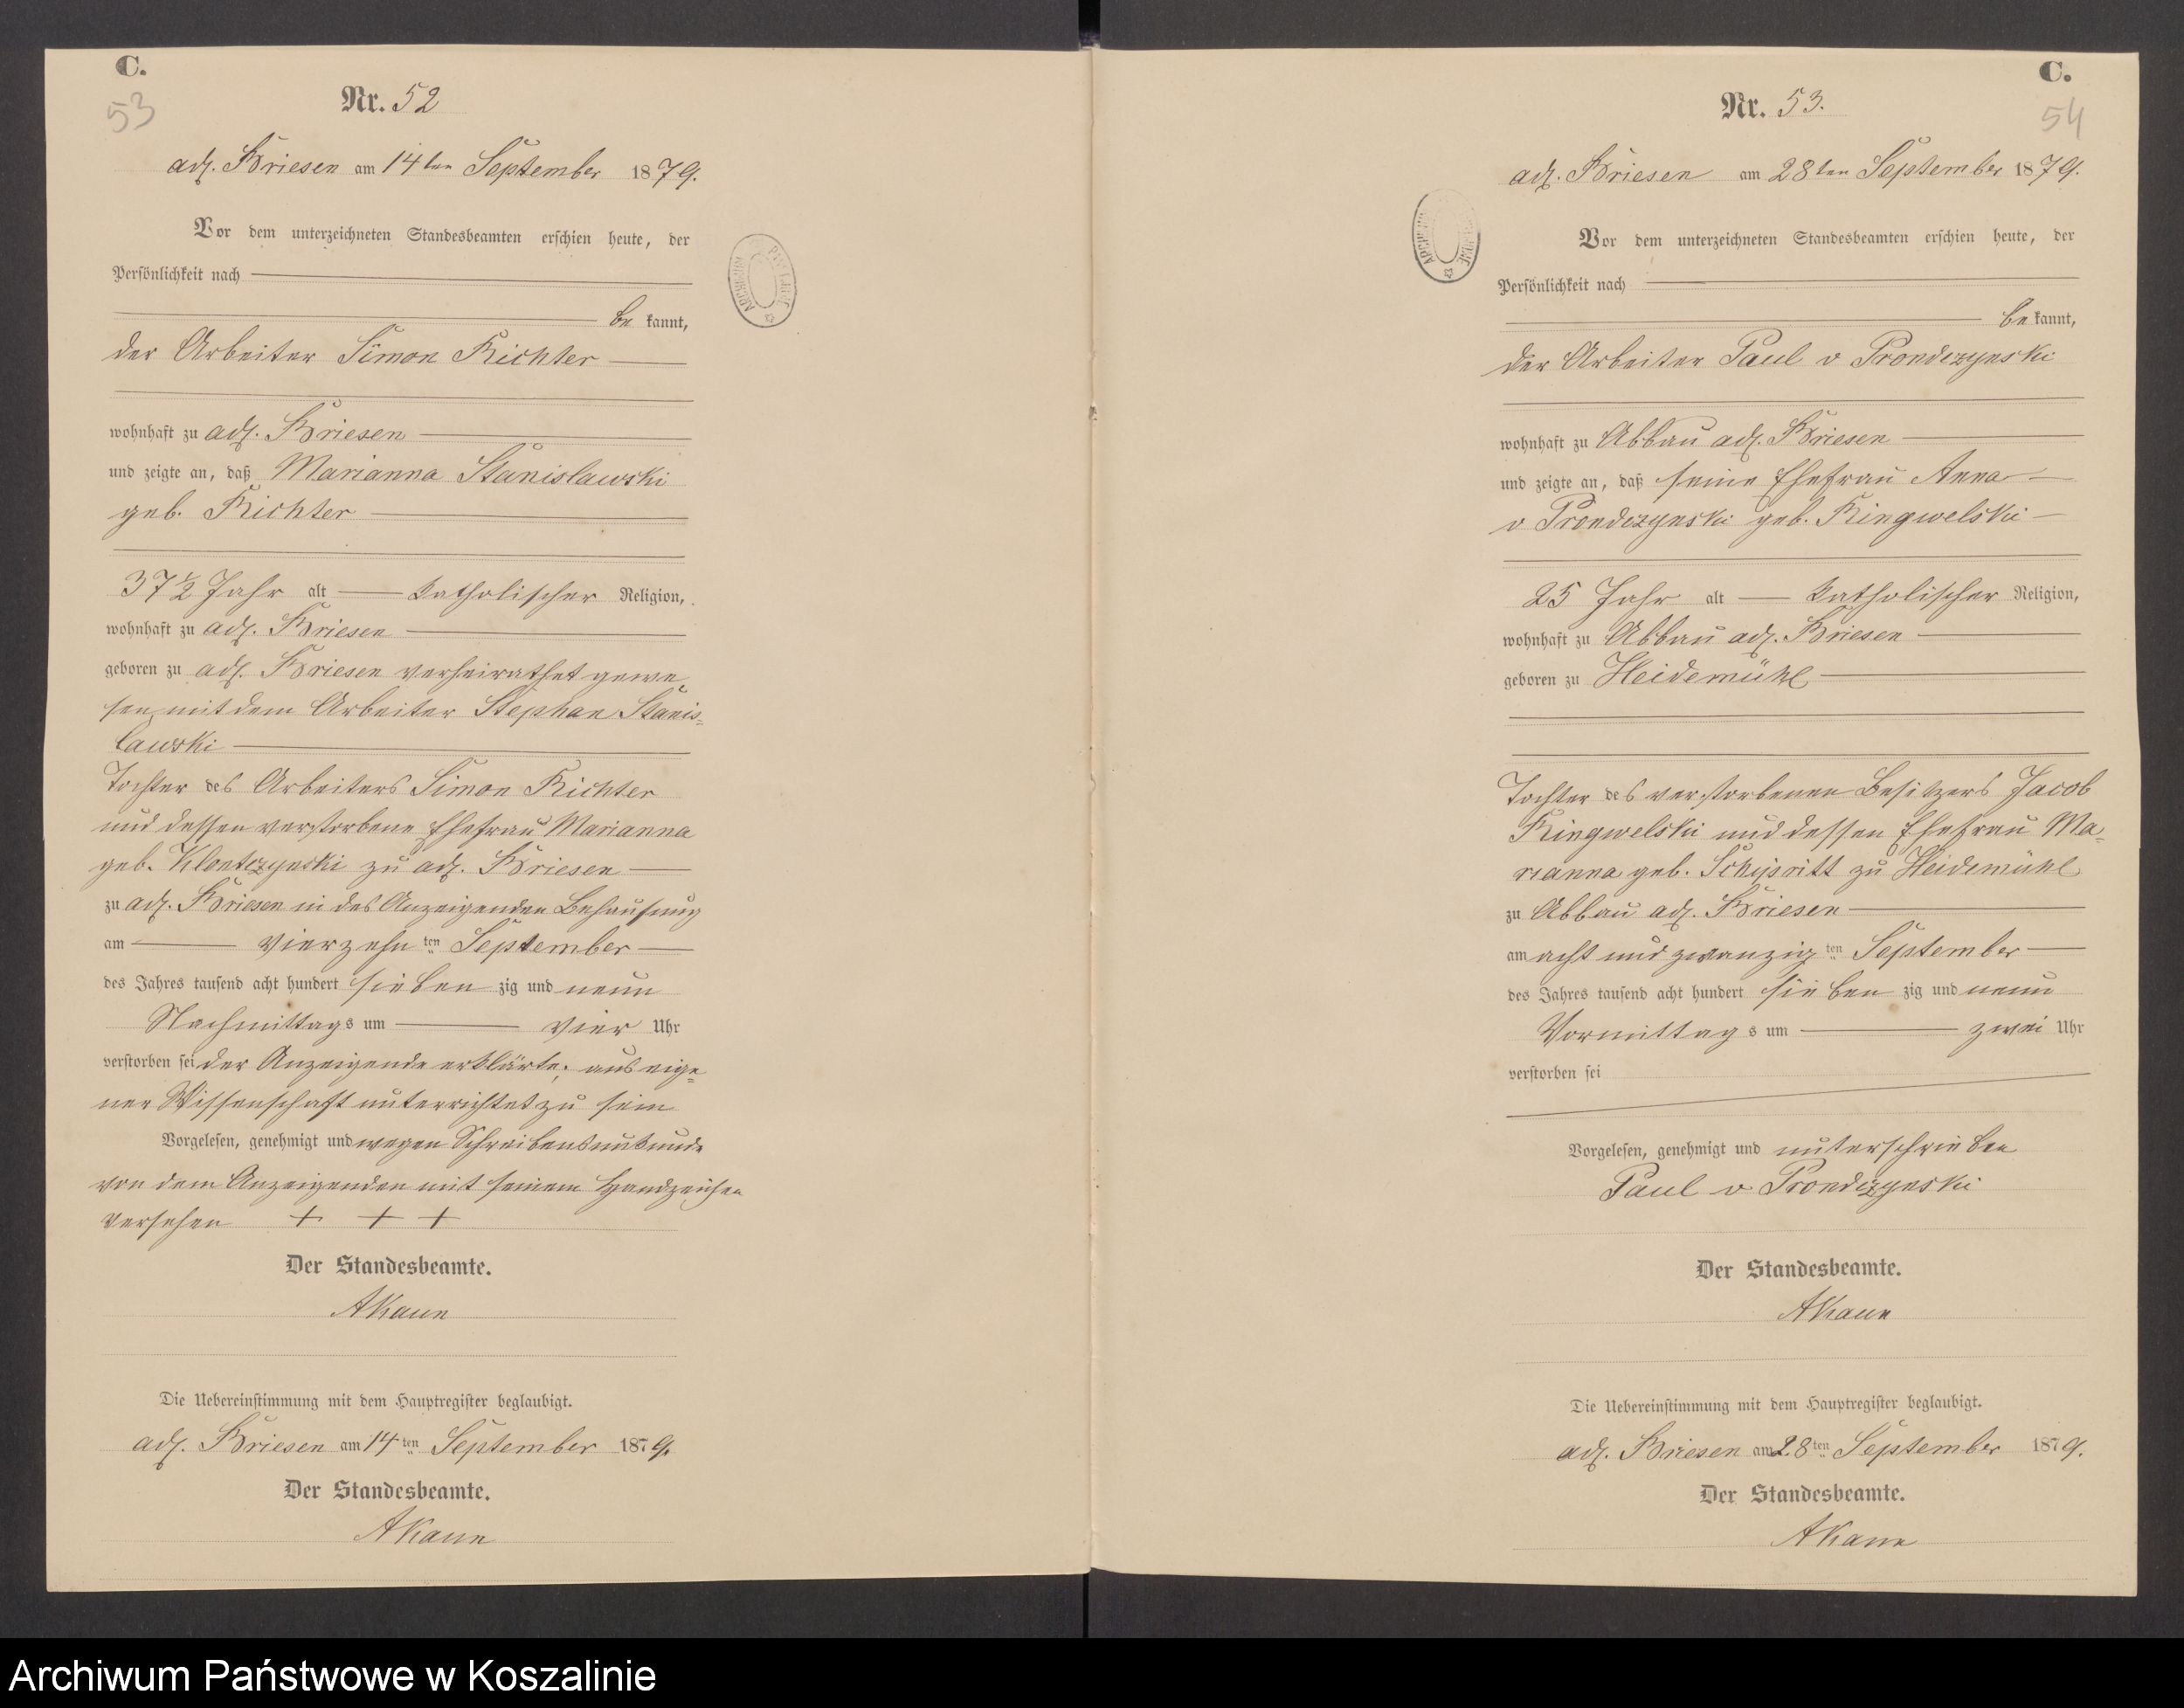 C.
53
Nr. 52
adl. Briesen am 14ten September 1879.
Vor dem unterzeichneten Standesbeamten erschien heute, der
Persönlichkeit nach
be kannt,
der Arbeiter Simon Richter
wohnhaft zu adl. Briesen
und zeigte an, daß Marianna Stanislawski
geb. Richter
37½ Jahr alt katholischer Religion,
wohnhaft zu adl. Briesen
geboren zu adl. Briesen verheirathet gewe-
sen mit dem Arbeiter Stephan Stanis-
lawski
Tochter des Arbeiters Simon Richter
und dessen verstorbene Ehefrau Marianna
geb. Klontczynski zu adl. Briesen
zu adl. Briesen in des Anzeigenden Behausung
am vierzehn ten September
des Jahres tausend acht hundert sieben zig und neun
Nachmittags um vier Uhr
verstorben sei der Anzeigende erklärte, aus eige-
ner Wissenschaft unterrichtet zu sein
Vorgelesen, genehmigt und wegen Schreibensunkunde
von dem Anzeigenden mit seinem Handzeichen
versehen + + +
Der Standesbeamte.
AKaun
Die Uebereinstimmung mit dem Hauptregister beglaubigt.
adl. Briesen am 14ten September 1879.
Der Standesbeamte.
AKaun
C.
54
Nr. 53.
adl. Briesen am 28ten September 1879.
Vor dem unterzeichneten Standesbeamten erschien heute, der
Persönlichkeit nach
be kannt,
der Arbeiter Paul v Prondczynski
wohnhaft zu Abbau adl. Briesen
und zeigte an, daß seine Ehefrau Anna
v Prondczynski geb. Ringwelski
25 Jahr alt katholischer Religion,
wohnhaft zu Abbau adl. Briesen
geboren zu Heidemühl
Tochter des verstorbenen Besitzers Jacob
Ringwelski und dessen Ehefrau Ma-
rianna geb. zu Heidemühl
zu Abbau adl. Briesen
am acht und zwanzig ten September
des Jahres tausend acht hundert sieben zig und neun
Vormittags um zwei Uhr
verstorben sei
Vorgelesen, genehmigt und unterschrieben
Paul v Prondczynski
Der Standesbeamte.
AKaun
Die Uebereinstimmung mit dem Hauptregister beglaubigt.
adl. Briesen am 28ten September 1879.
Der Standesbeamte.
AKaun
Archiwum Państwowe w Koszalinie